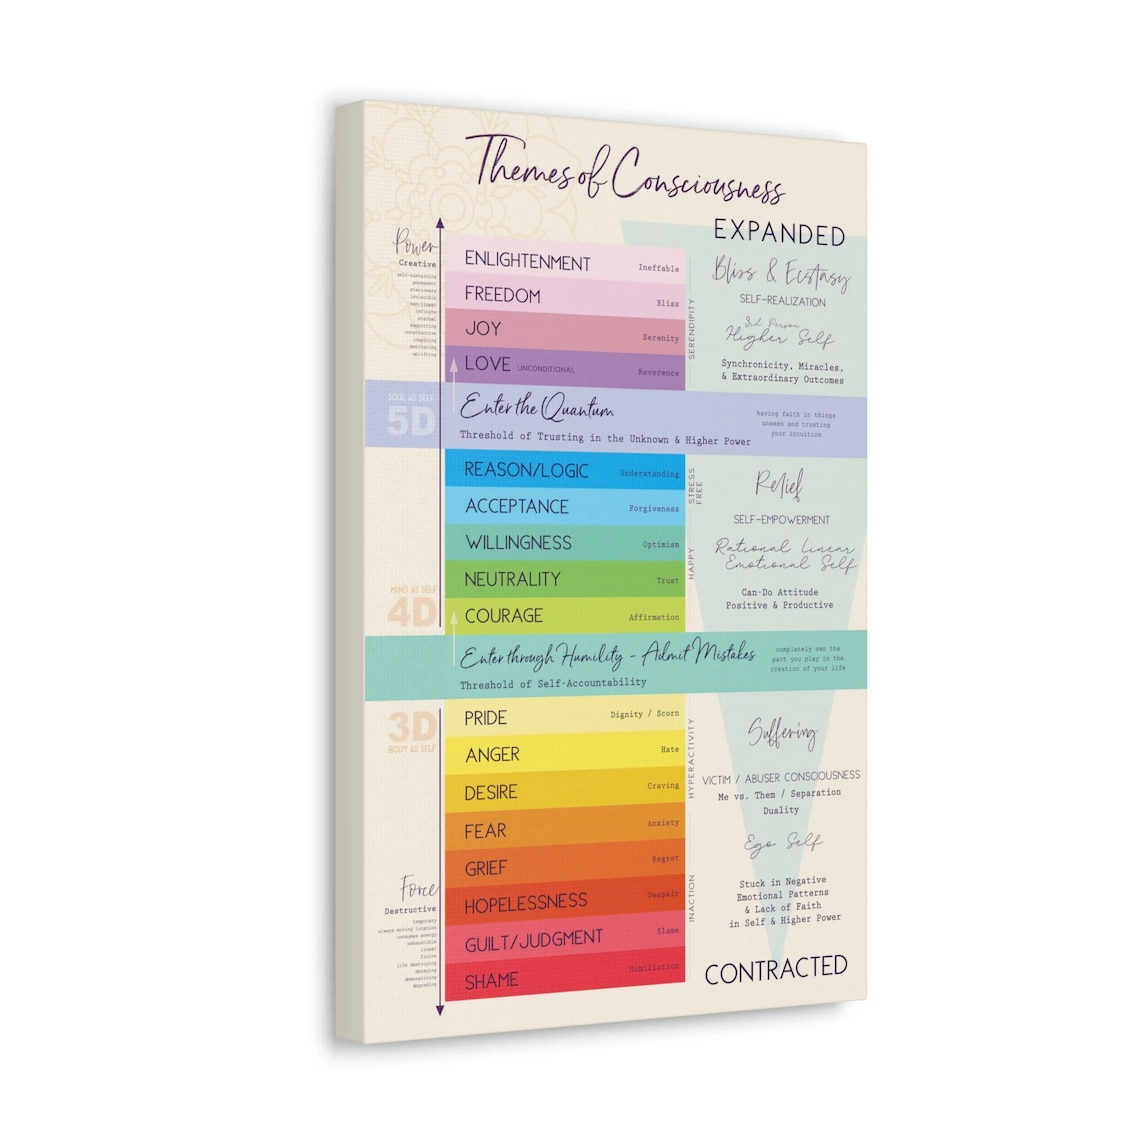 Themes of Consciousness
EXPANDED
Power
Creative
self-sustaining
permanent
stationary
invincible
non-linear
infinite
eternal
supporting
constructive
inspiring
motivating
uplifting
ENLIGHTENMENT Ineffable
FREEDOM Bliss
JOY Serenity
LOVE UNCONDITIONAL Reverence
SERENDIPITY
Bliss & Ecstasy
SELF-REALIZATION
3rd Person
Higher Self
Synchronicity, Miracles,
& Extraordinary Outcomes
SOUL AS SELF
5D
Enter the Quantum
Threshold of Trusting in the Unknown & Higher Power
having faith in things
unseen and trusting
your intuition
REASON/LOGIC Understanding
ACCEPTANCE Forgiveness
WILLINGNESS Optimism
NEUTRALITY Trust
COURAGE Affirmation
STRESS
FREE
HAPPY
Relief
SELF-EMPOWERMENT
Rational Linear
Emotional Self
Can-Do Attitude
Positive & Productive
MIND AS SELF
4D
Enter through Humility - Admit Mistakes
Threshold of Self-Accountability
completely own the
part you play in the
creation of your life
3D
BODY AS SELF
PRIDE Dignity / Scorn
ANGER Hate
DESIRE Craving
FEAR Anxiety
GRIEF Regret
HOPELESSNESS Despair
GUILT/JUDGMENT Blame
SHAME Humiliation
HYPERACTIVITY
INACTION
Suffering
VICTIM / ABUSER CONSCIOUSNESS
Me vs. Them / Separation
Duality
Ego Self
Stuck in Negative
Emotional Patterns
& Lack of Faith
in Self & Higher Power
Force
Destructive
temporary
always moving location
consumes energy
exhaustible
linear
finite
life destroying
decaying
demoralizing
degrading
CONTRACTED